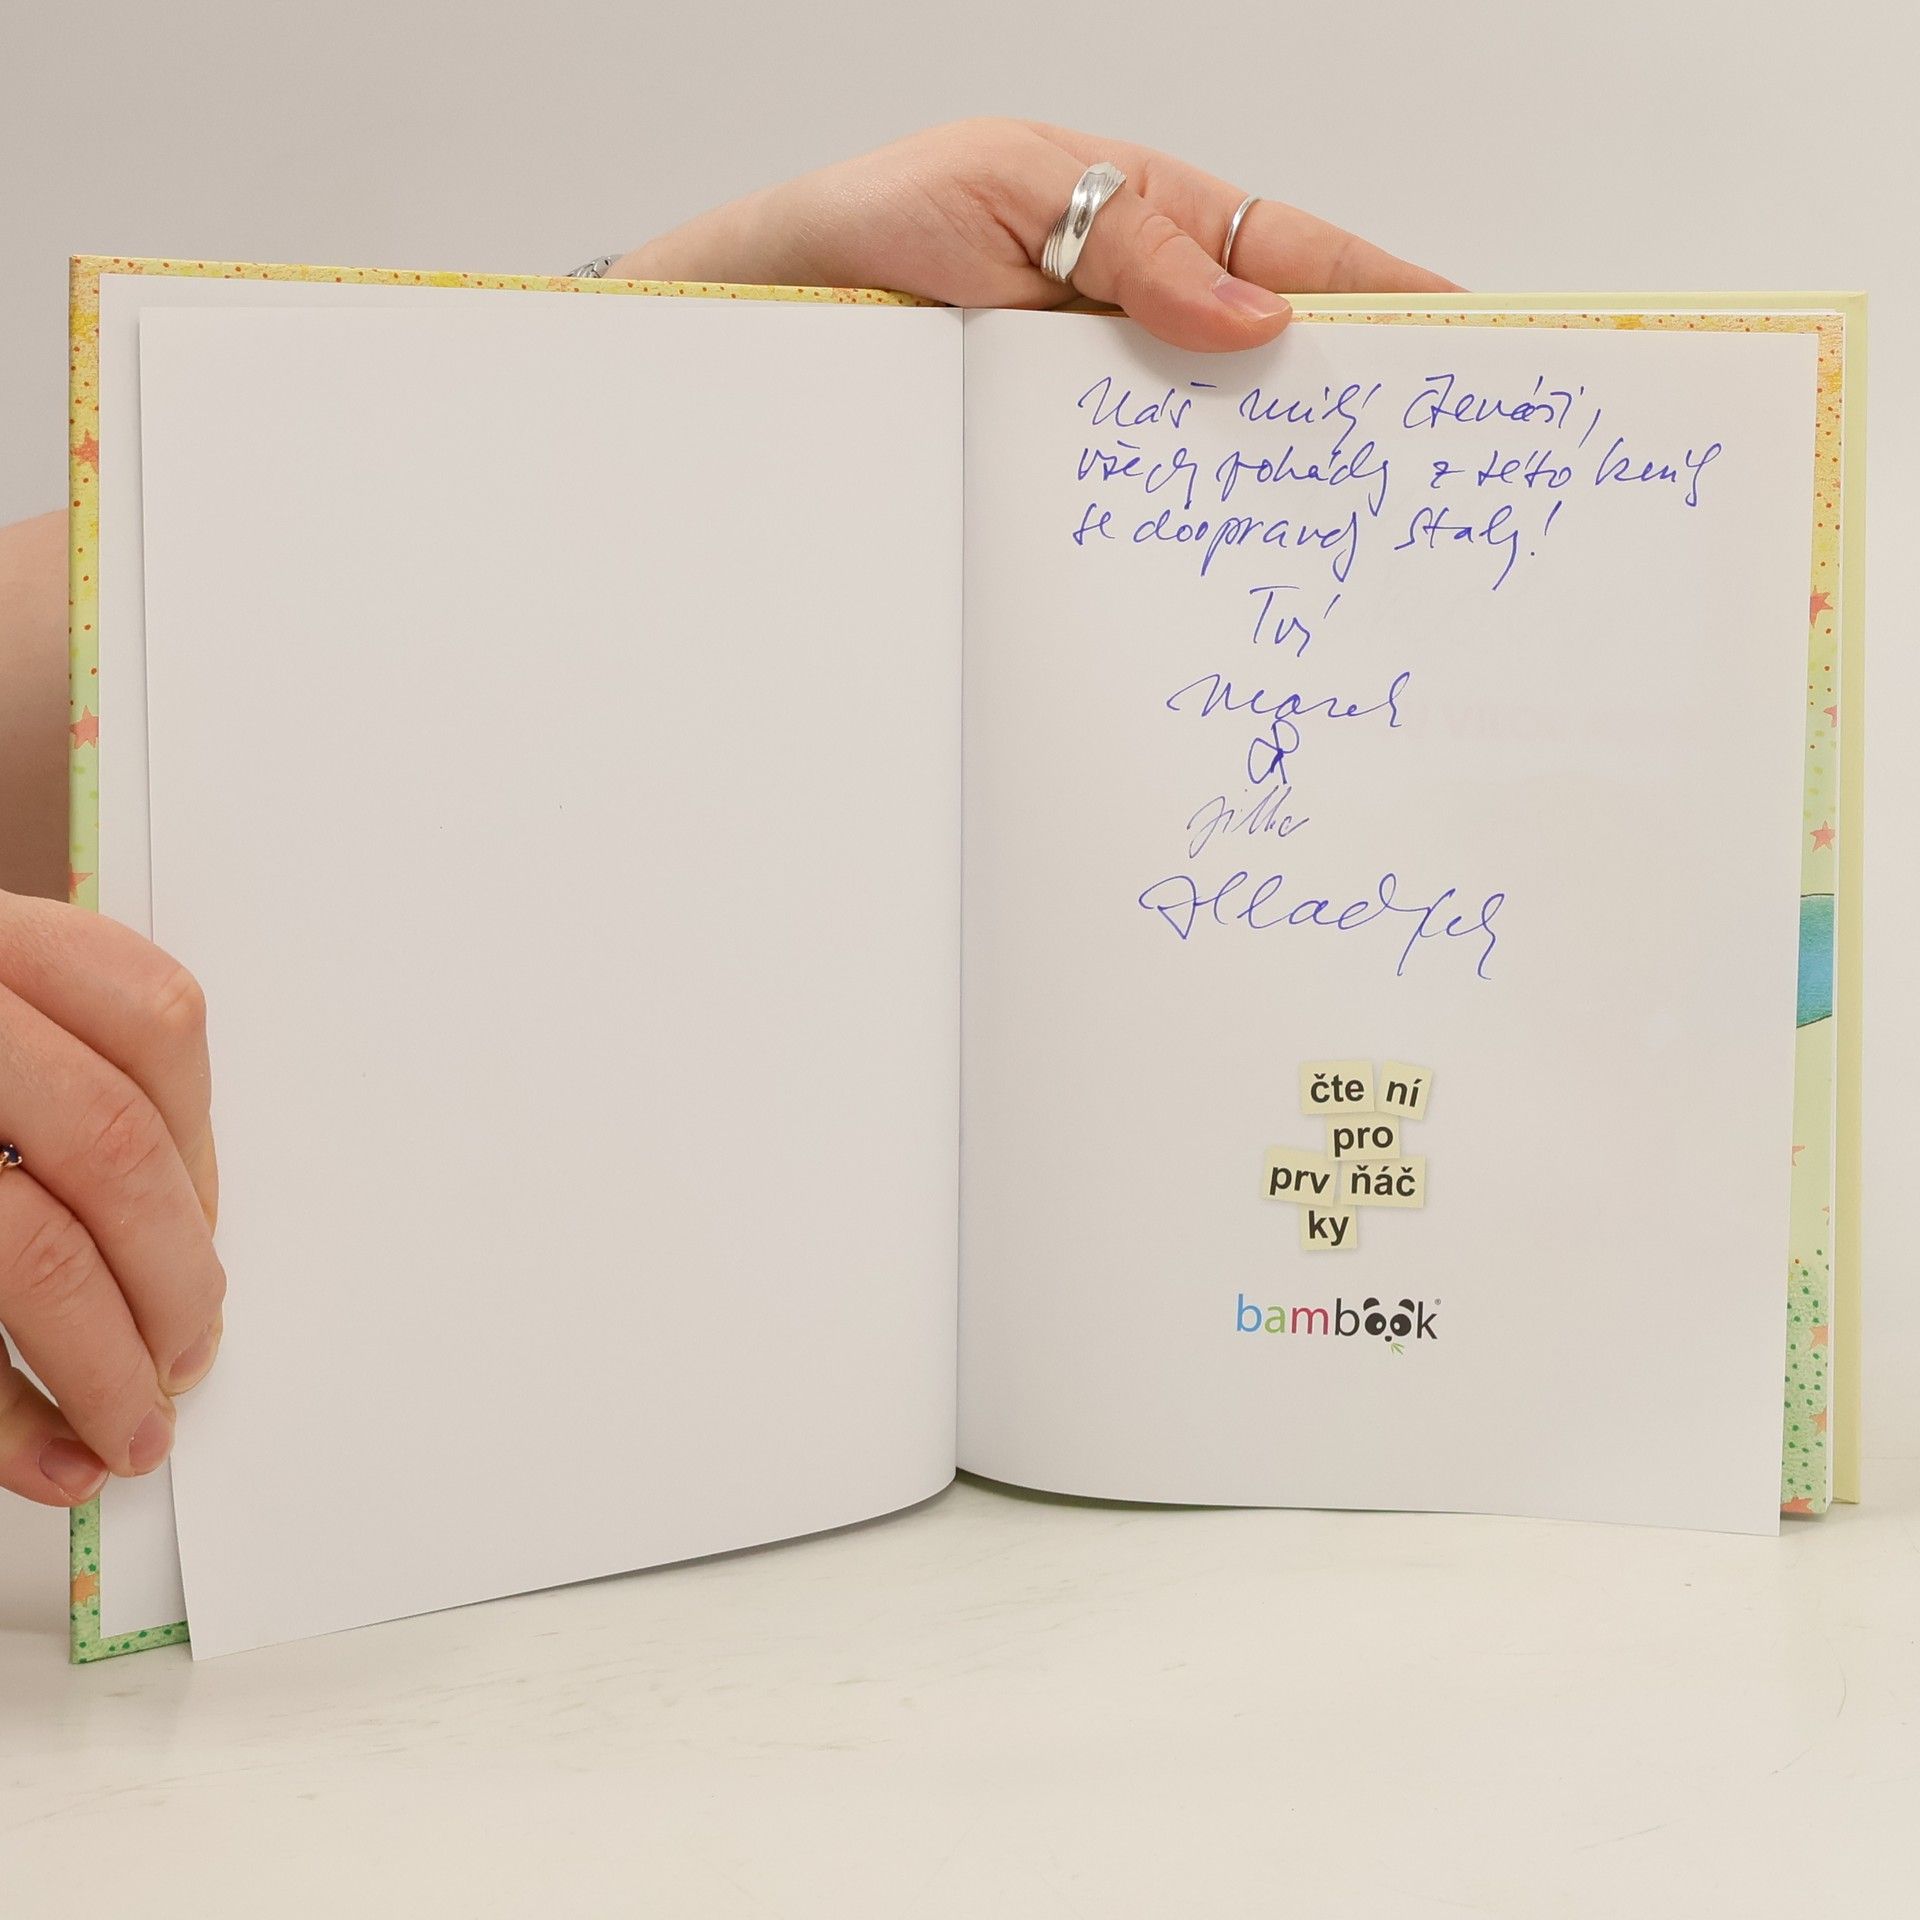 Náš milý čtenáři,
všechny pohádky z této knihy
se doopravdy staly!
Tvý
Marek
&
Jitka
čte ní
pro
prv ňáč
ky
bambook®